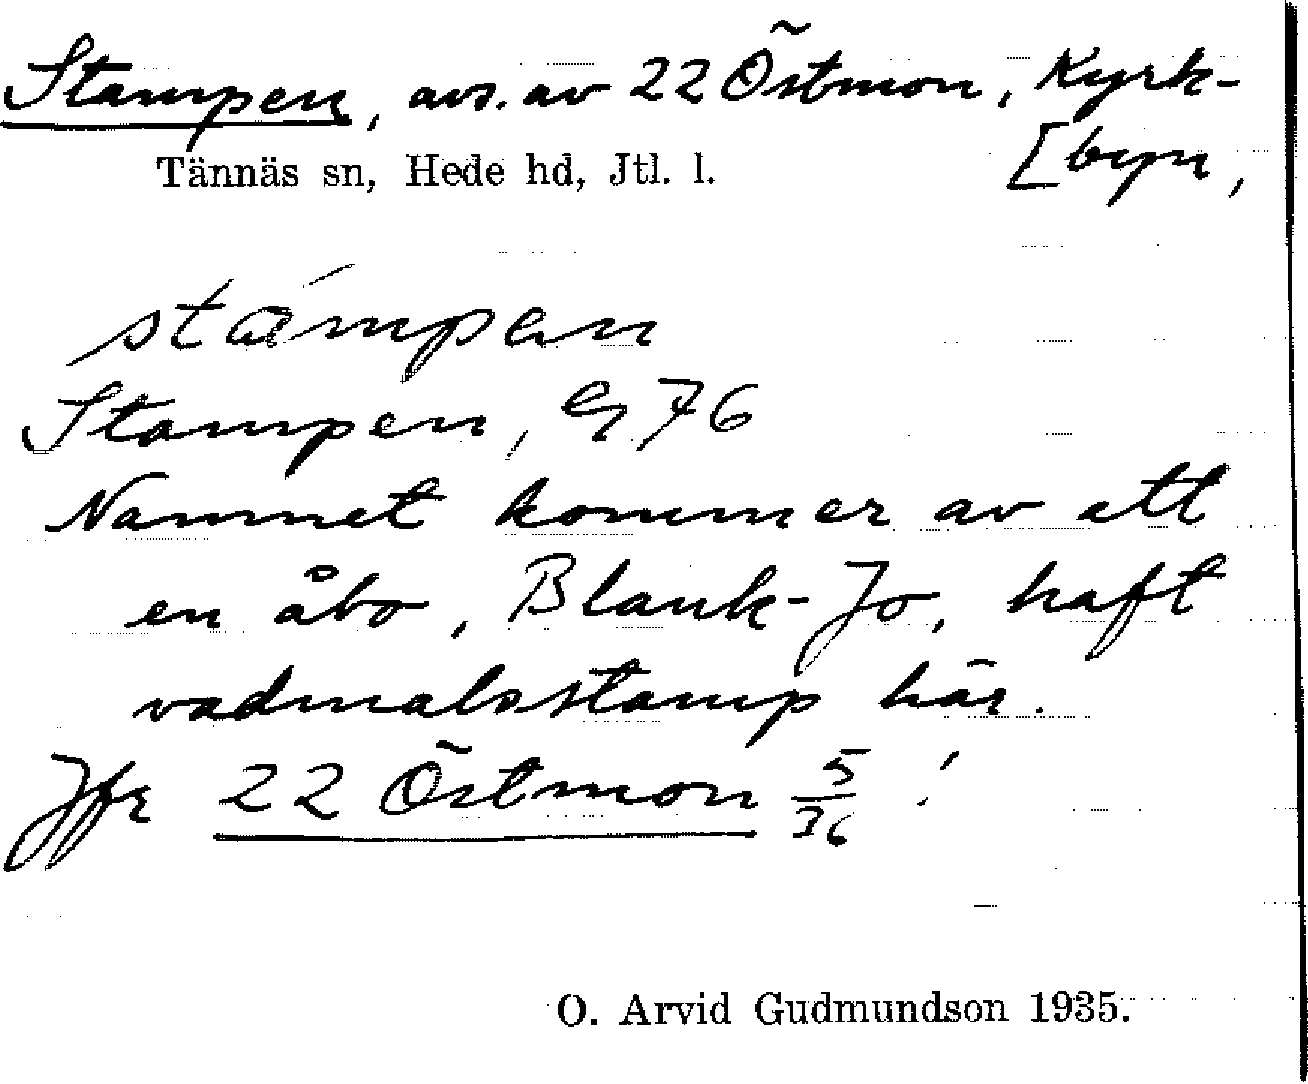 Stampen, avs. av 22 Östmon, Kyrk-
[byn,
Tännäs sn, Hede hd, Jtl. l.
stámpen
Stampen, G 76
Namnet kommer av att
en åbo, Blank-Jo, haft
vadmalsstamp här.
Jfr 22 Östmon 5/36!
O. Arvid Gudmundson 1935.